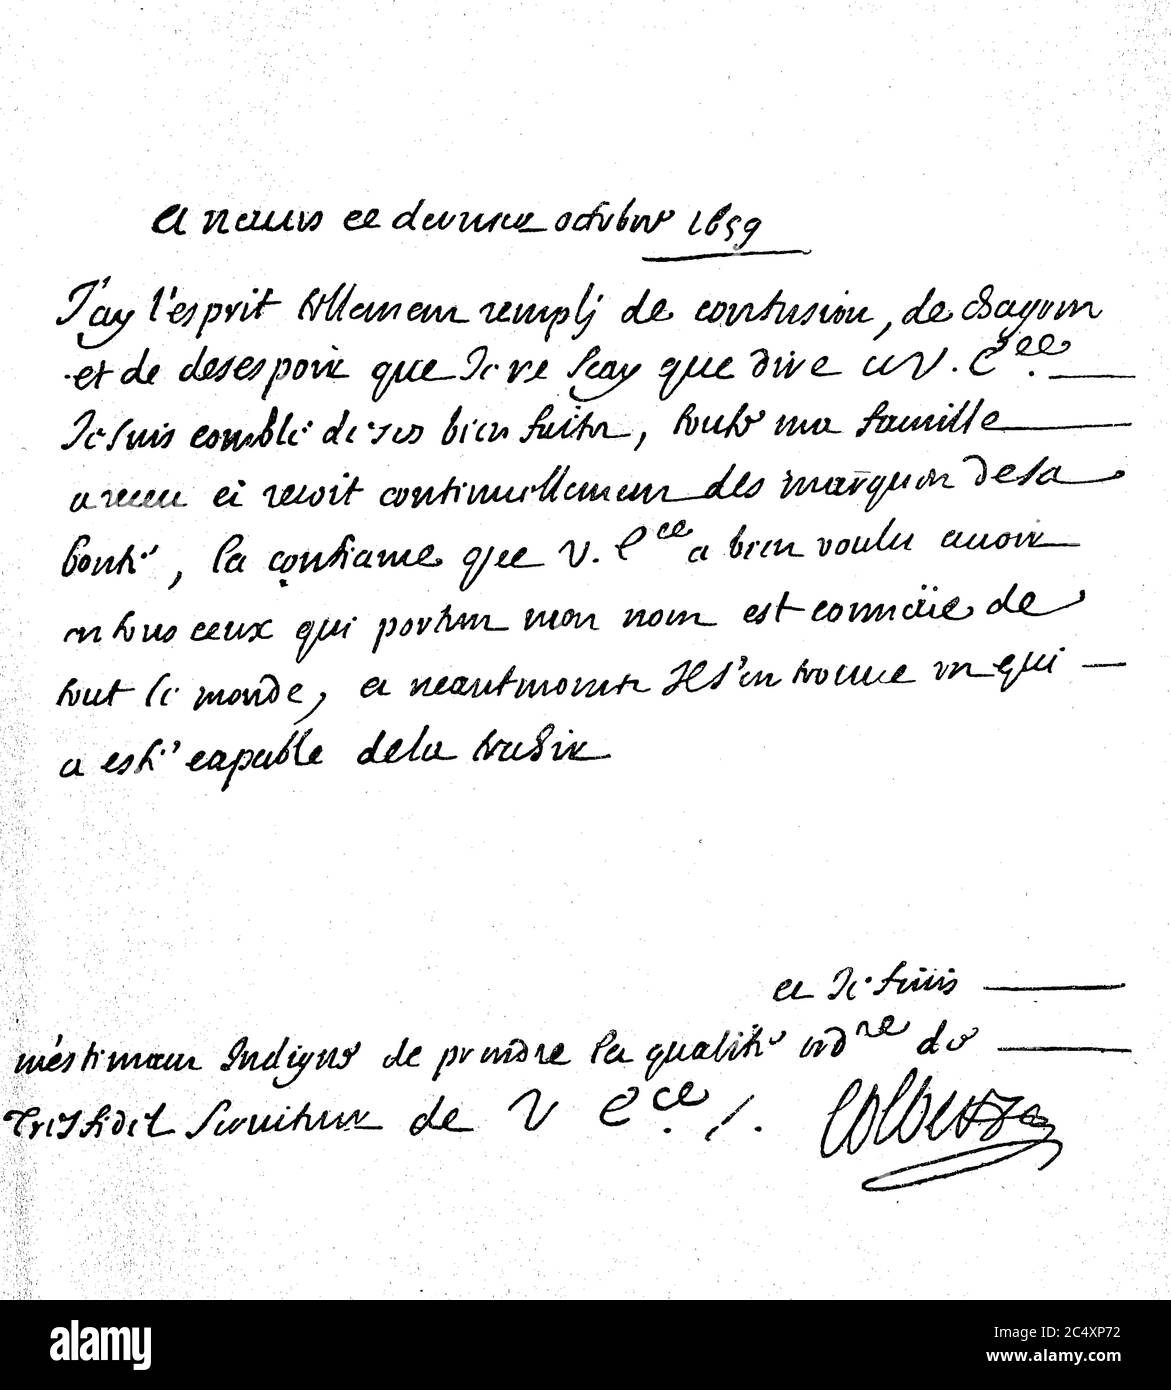 A neuers ce dernier octobre 1659
J'ay l'esprit tellement remply de confusion, de chagrin
et de desespoir que Je ne scay que dire a V. Ece.
Je suis comblé de ses bienfaits, toute ma famille
a receu et recoit continuellement des marques de sa
bonté, la confiance que V. Ece a bien voulu avoir
en tous ceux qui portent mon nom est connüe de
tout le monde, et neantmoins Il s'en trouve un qui
a esté capable de la trahir
et Je suis
m'estimant Indigne de prendre la qualité ordre de
Tres fidel Serviteur de V Ece.
Colbert
alamy
Image ID: 2C4XP72
www.alamy.com